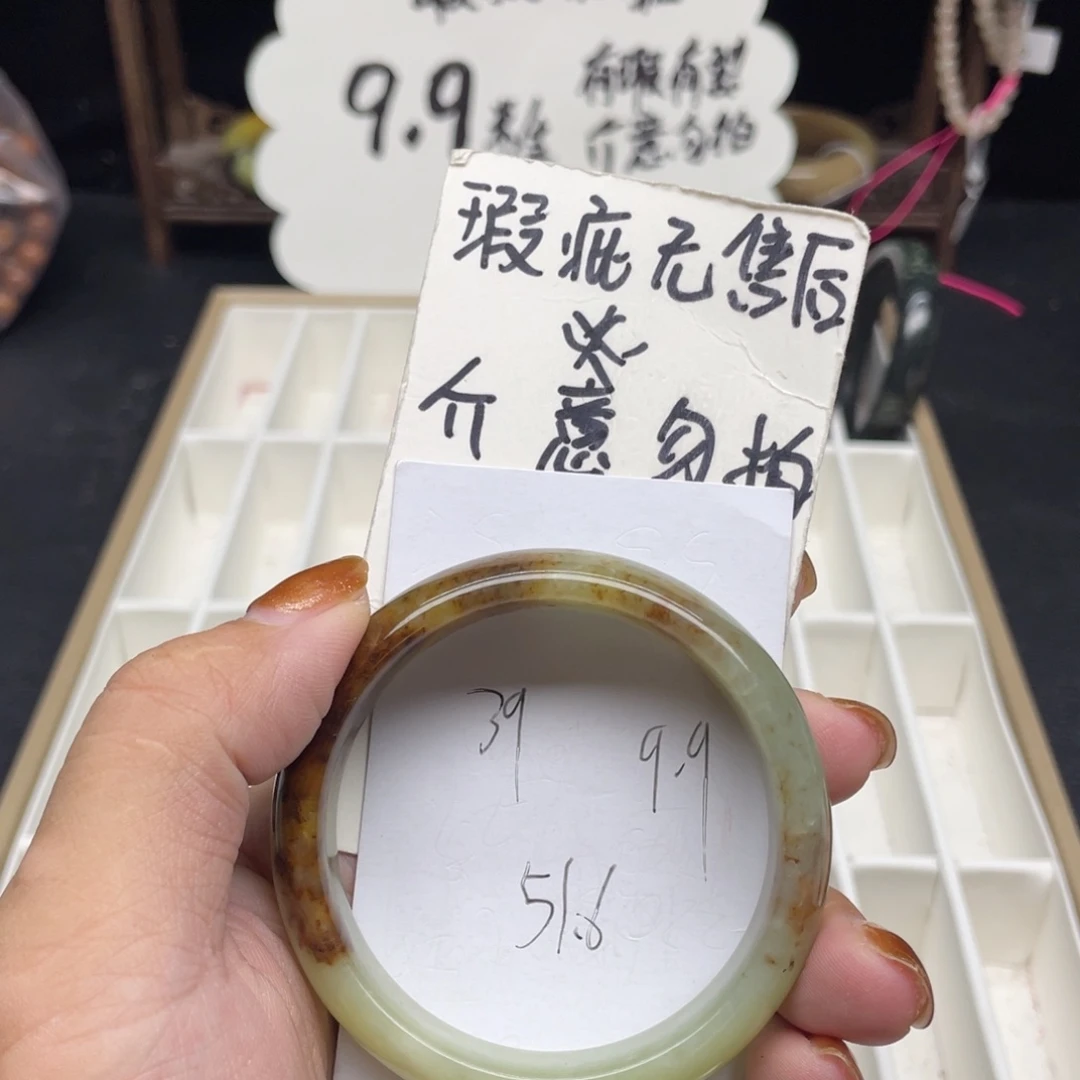 9.9
有瑕有裂
介意勿拍
瑕疵无售后
介意勿拍
39
9.9
51.6